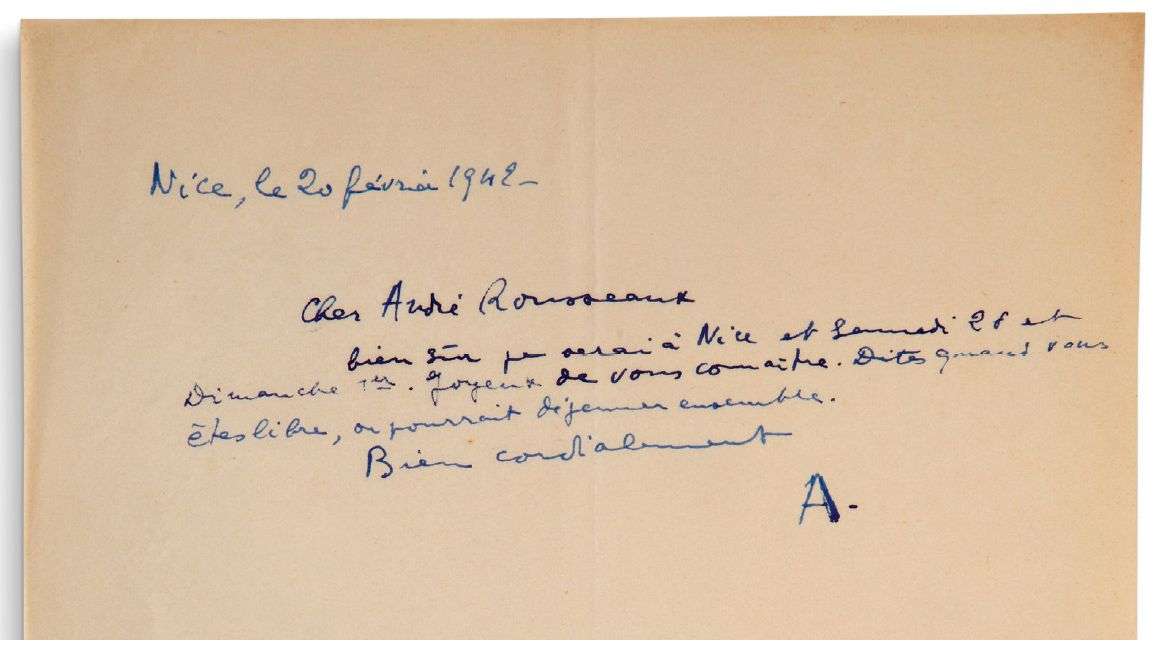 Nice, le 20 février 1942 -
Cher André Rousseaux
bien sûr je serai à Nice et Samedi 28 et
Dimanche 1er. Joyeux de vous connaître. Dites quand vous
êtes libre, on pourrait déjeuner ensemble.
Bien cordialement
A.